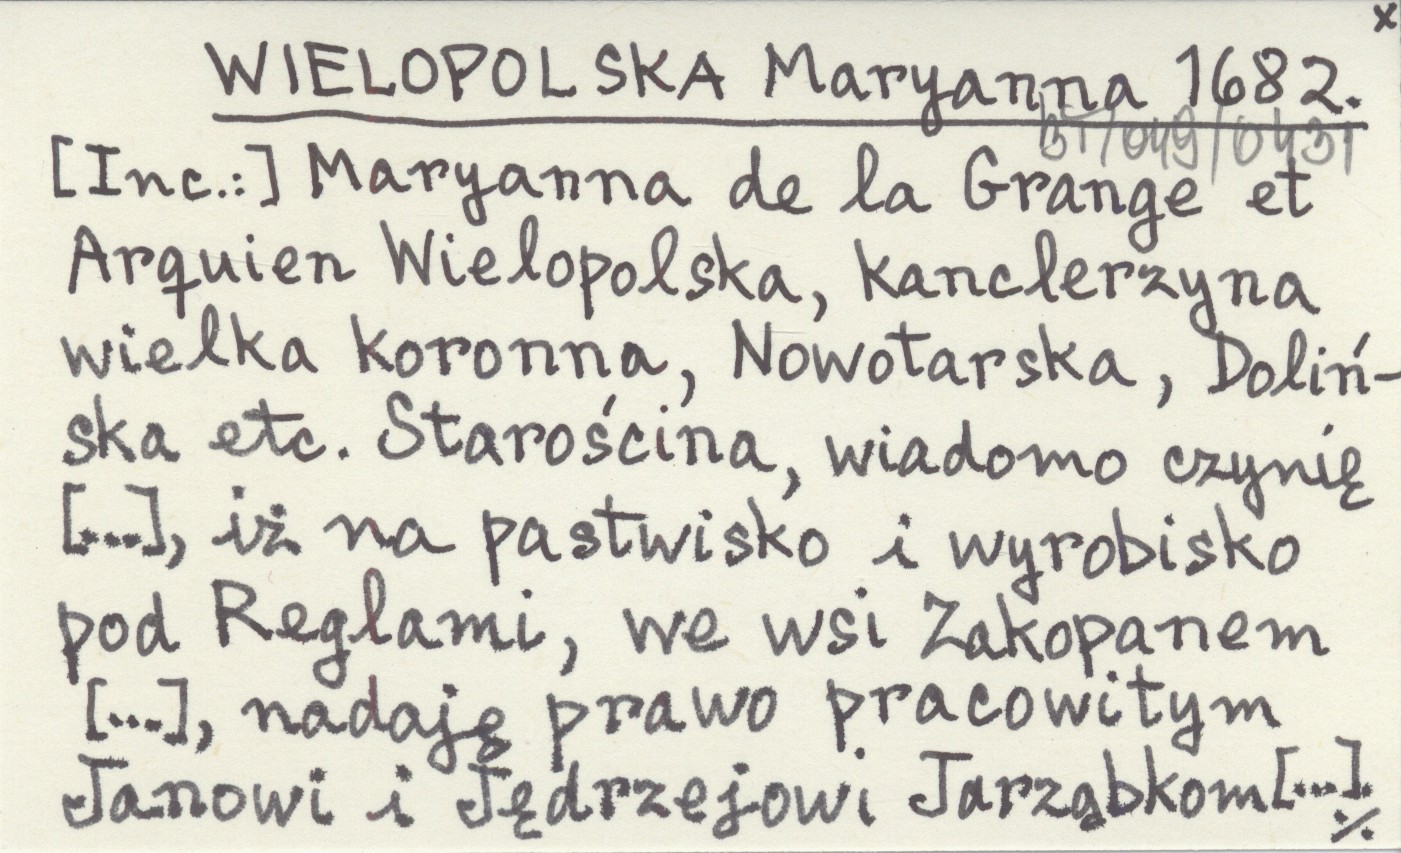 x
WIELOPOLSKA Maryanna 1682.
[Inc.:] Maryanna de la Grange et
Arquien Wielopolska, kanclerzyna
wielka koronna, Nowotarska, Doliń-
ska etc. Starościna, wiadomo czynię
[...], iż na pastwisko i wyrobisko
pod Reglami, we wsi Zakopanem
[...], nadaję prawo pracowitym
Janowi i Jędrzejowi Jarząbkom [...].
./.